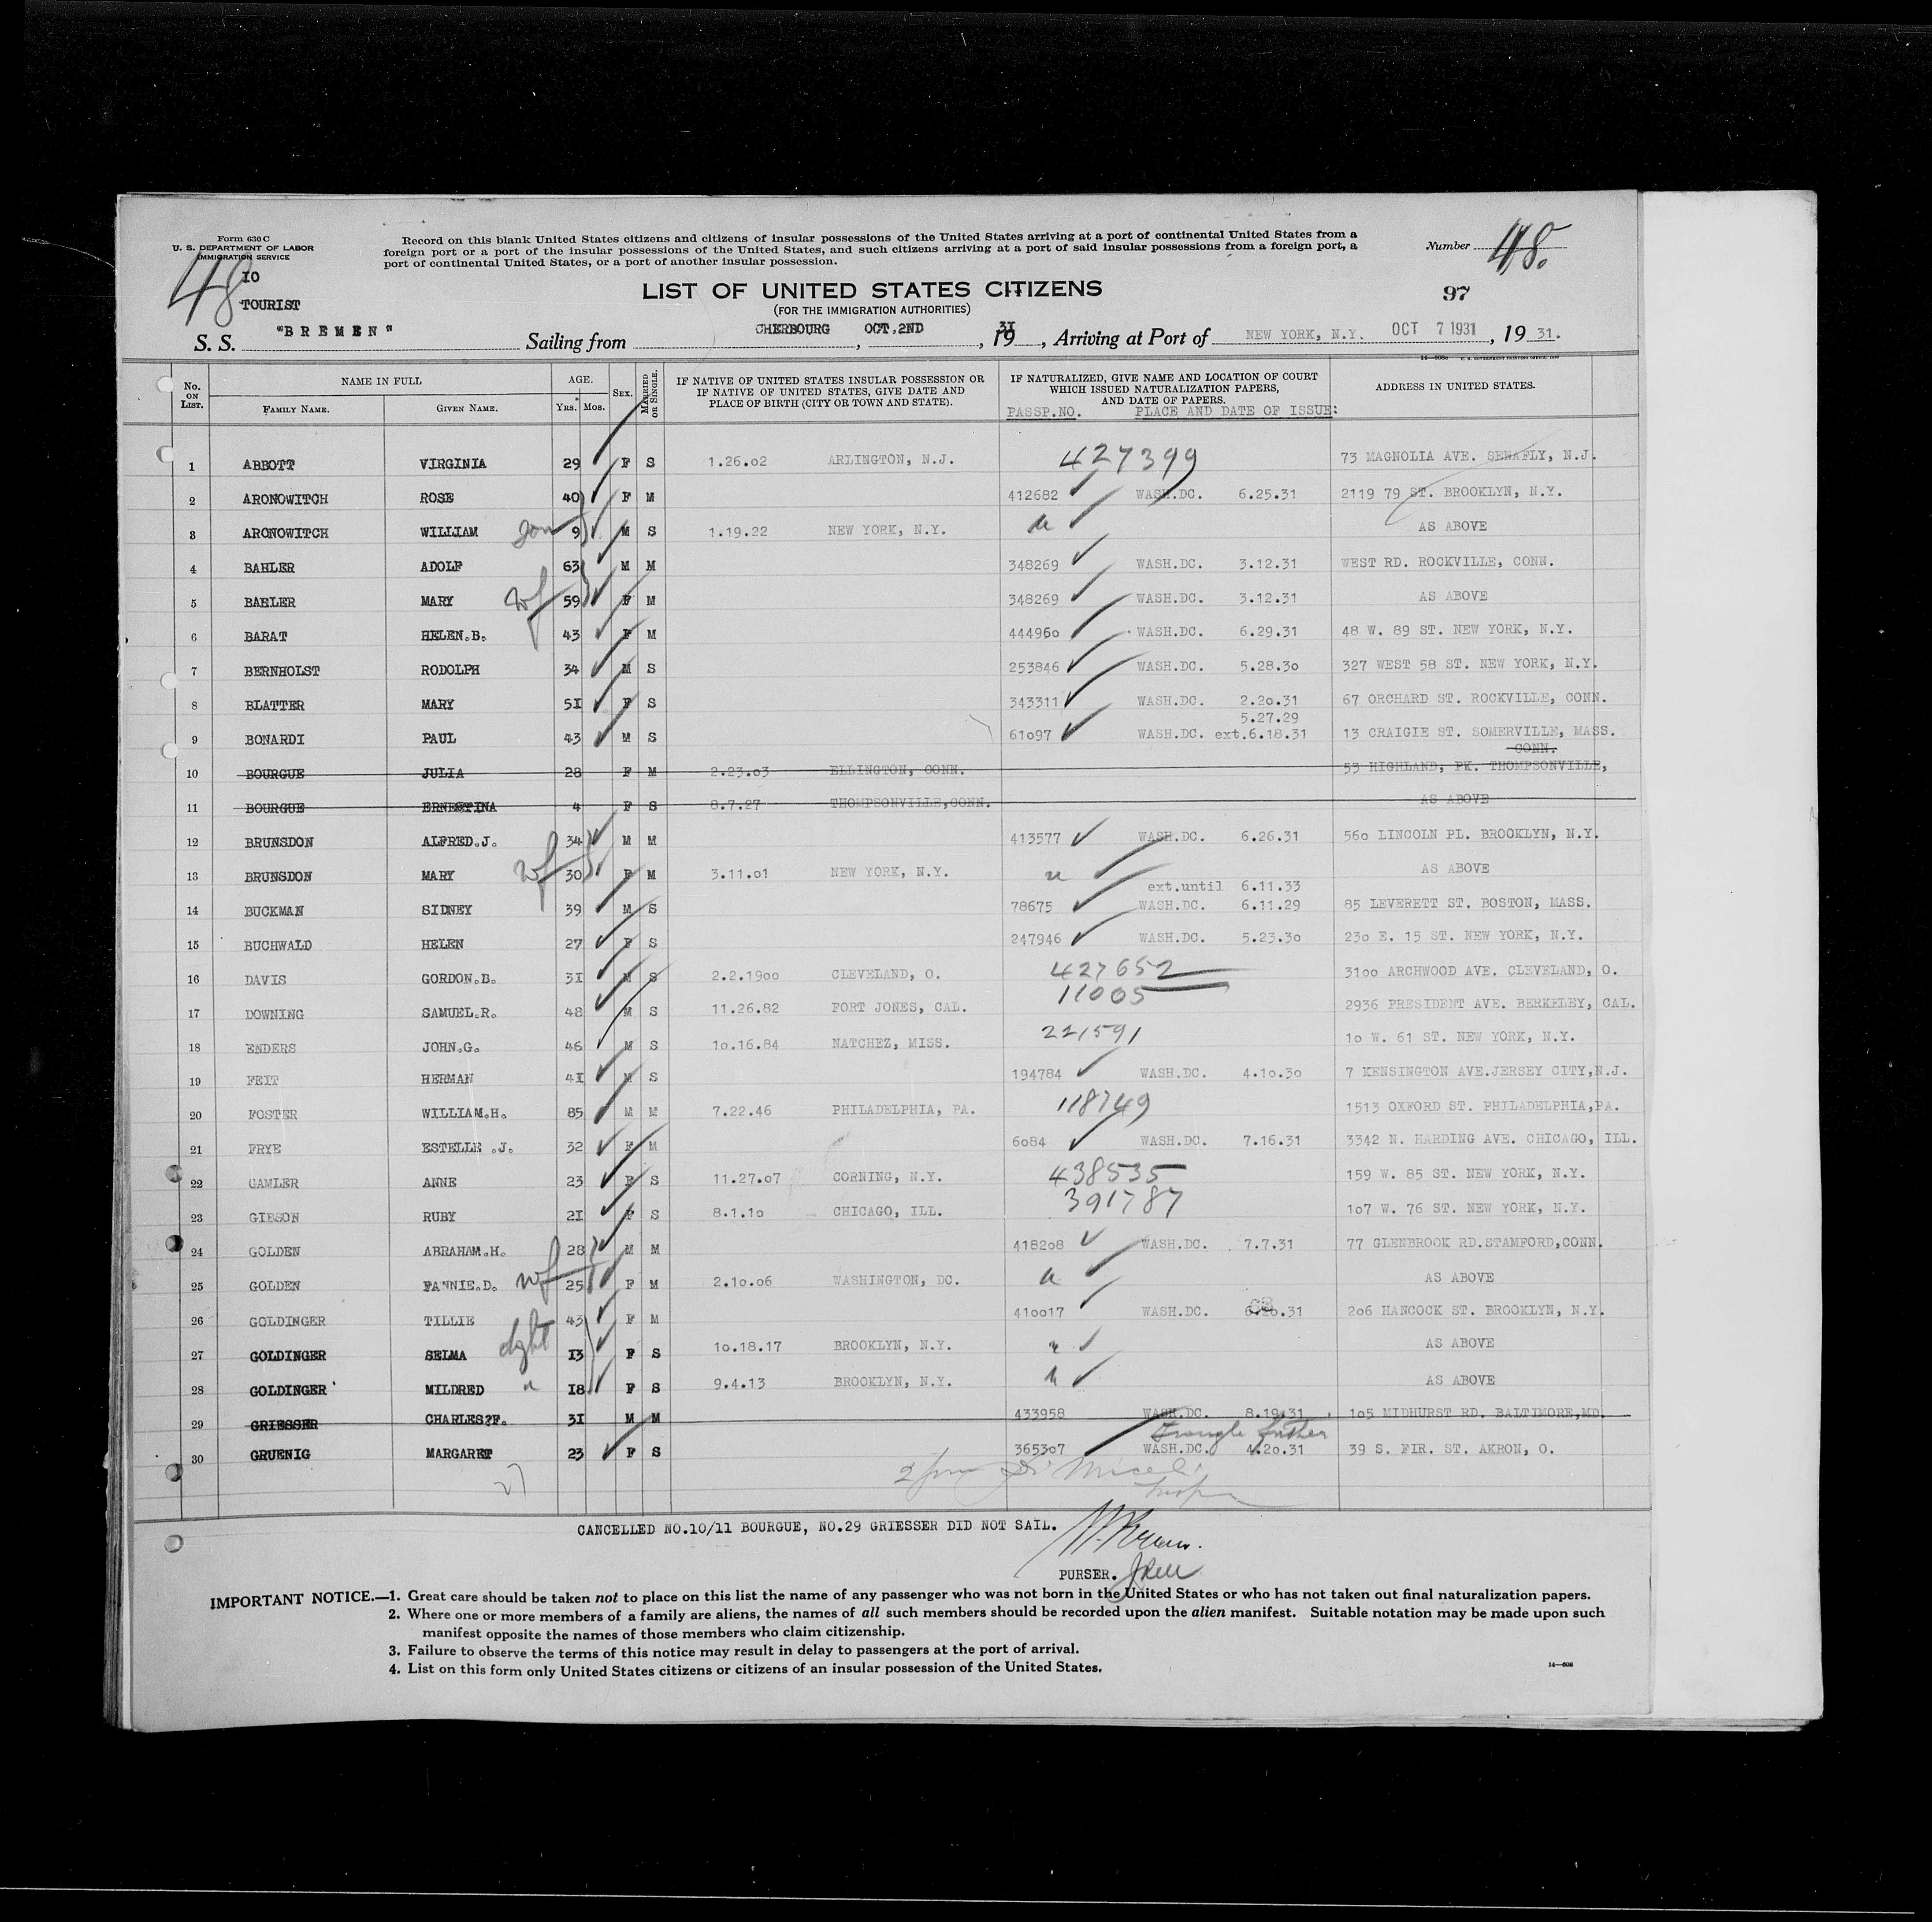 Form 630 C
U. S. DEPARTMENT OF LABOR
IMMIGRATION SERVICE
48
IO
TOURIST
Record on this blank United States citizens and citizens of insular possessions of the United States arriving at a port of continental United States from a
foreign port or a port of the insular possessions of the United States, and such citizens arriving at a port of said insular possessions from a foreign port, a
port of continental United States, or a port of another insular possession.
Number 48.
LIST OF UNITED STATES CITIZENS
(FOR THE IMMIGRATION AUTHORITIES)
97
S. S. "BREMEN" Sailing from CHERBOURG , OCT.2ND , 19 3I , Arriving at Port of NEW YORK, N.Y. OCT 7 1931 , 19 31.
No. ON LIST. NAME IN FULL FAMILY NAME. GIVEN NAME. AGE. YRS. MOS. SEX. MARRIED OR SINGLE. IF NATIVE OF UNITED STATES INSULAR POSSESSION OR IF NATIVE OF UNITED STATES, GIVE DATE AND PLACE OF BIRTH (CITY OR TOWN AND STATE). IF NATURALIZED, GIVE NAME AND LOCATION OF COURT WHICH ISSUED NATURALIZATION PAPERS, AND DATE OF PAPERS. ADDRESS IN UNITED STATES.
PASSP.NO. PLACE AND DATE OF ISSUE:
1 ABBOTT VIRGINIA 29 F S 1.26.02 ARLINGTON, N.J. 427399 73 MAGNOLIA AVE. SENAFLY, N.J.
2 ARONOWITCH ROSE 40 F M 412682 WASH.DC. 6.25.31 2119 79 ST. BROOKLYN, N.Y.
3 ARONOWITCH WILLIAM son 9 M S 1.19.22 NEW YORK, N.Y. AS ABOVE
4 BAHLER ADOLF 63 M M 348269 WASH.DC. 3.12.31 WEST RD. ROCKVILLE, CONN.
5 BAHLER MARY wf 59 F M 348269 WASH.DC. 3.12.31 AS ABOVE
6 BARAT HELEN.B. 43 F M 444960 WASH.DC. 6.29.31 48 W. 89 ST. NEW YORK, N.Y.
7 BERNHOLST RODOLPH 34 M S 253846 WASH.DC. 5.28.30 327 WEST 58 ST. NEW YORK, N.Y.
8 BLATTER MARY 5I F S 343311 WASH.DC. 2.20.31 67 ORCHARD ST. ROCKVILLE, CONN.
5.27.29
9 BONARDI PAUL 43 M S 61097 WASH.DC. ext.6.18.31 13 CRAIGIE ST. SOMERVILLE, MASS.
CONN.
10 BOURGUE JULIA 28 F M 2.23.03 ELLINGTON, CONN. 53 HIGHLAND, PK. THOMPSONVILLE,
11 BOURGUE ERNESTINA 4 F S 8.7.27 THOMPSONVILLE,CONN. AS ABOVE
12 BRUNSDON ALFRED.J. 34 M M 413577 WASH.DC. 6.26.31 560 LINCOLN PL. BROOKLYN, N.Y.
13 BRUNSDON MARY wf 30 F M 3.11.01 NEW YORK, N.Y. AS ABOVE
ext.until 6.11.33
14 BUCKMAN SIDNEY 39 M S 78675 WASH.DC. 6.11.29 85 LEVERETT ST. BOSTON, MASS.
15 BUCHWALD HELEN 27 F S 247946 WASH.DC. 5.23.30 230 E. 15 ST. NEW YORK, N.Y.
16 DAVIS GORDON.B. 3I M S 2.2.1900 CLEVELAND, O. 427652 3100 ARCHWOOD AVE. CLEVELAND, O.
17 DOWNING SAMUEL.R. 48 M S 11.26.82 FORT JONES, CAL. 11005 2936 PRESIDENT AVE. BERKELEY, CAL.
18 ENDERS JOHN.G. 46 M S 10.16.84 NATCHEZ, MISS. 221591 10 W. 61 ST. NEW YORK, N.Y.
19 FEIT HERMAN 4I M S 194784 WASH.DC. 4.10.30 7 KENSINGTON AVE.JERSEY CITY,N.J.
20 FOSTER WILLIAM.H. 85 M M 7.22.46 PHILADELPHIA, PA. 118749 1513 OXFORD ST. PHILADELPHIA,PA.
21 FRYE ESTELLE .J. 32 F M 6084 WASH.DC. 7.16.31 3342 N. HARDING AVE. CHICAGO, ILL.
22 GAMLER ANNE 23 F S 11.27.07 CORNING, N.Y. 438535 159 W. 85 ST. NEW YORK, N.Y.
23 GIBSON RUBY 2I F S 8.1.10 CHICAGO, ILL. 391787 107 W. 76 ST. NEW YORK, N.Y.
24 GOLDEN ABRAHAM.H. 28 M M 418208 WASH.DC. 7.7.31 77 GLENBROOK RD.STAMFORD,CONN.
25 GOLDEN FANNIE.D. wf 25 F M 2.10.06 WASHINGTON, DC. AS ABOVE
26 GOLDINGER TILLIE 43 F M 410017 WASH.DC. 206 HANCOCK ST. BROOKLYN, N.Y.
27 GOLDINGER SELMA dght I3 F S 10.18.17 BROOKLYN, N.Y. AS ABOVE
28 GOLDINGER MILDRED " I8 F S 9.4.13 BROOKLYN, N.Y. AS ABOVE
29 GRIESSER CHARLES?F. 3I M M 433958 WASH.DC. 8.19.31 105 MIDHURST RD. BALTIMORE,MD.
30 GRUENIG MARGARET 23 F S 365307 WASH.DC. 4.20.31 39 S. FIR. ST. AKRON, O.
27
CANCELLED NO.10/11 BOURGUE, NO.29 GRIESSER DID NOT SAIL.
PURSER.
IMPORTANT NOTICE.—1. Great care should be taken not to place on this list the name of any passenger who was not born in the United States or who has not taken out final naturalization papers.
2. Where one or more members of a family are aliens, the names of all such members should be recorded upon the alien manifest. Suitable notation may be made upon such
manifest opposite the names of those members who claim citizenship.
3. Failure to observe the terms of this notice may result in delay to passengers at the port of arrival.
4. List on this form only United States citizens or citizens of an insular possession of the United States.
14—608